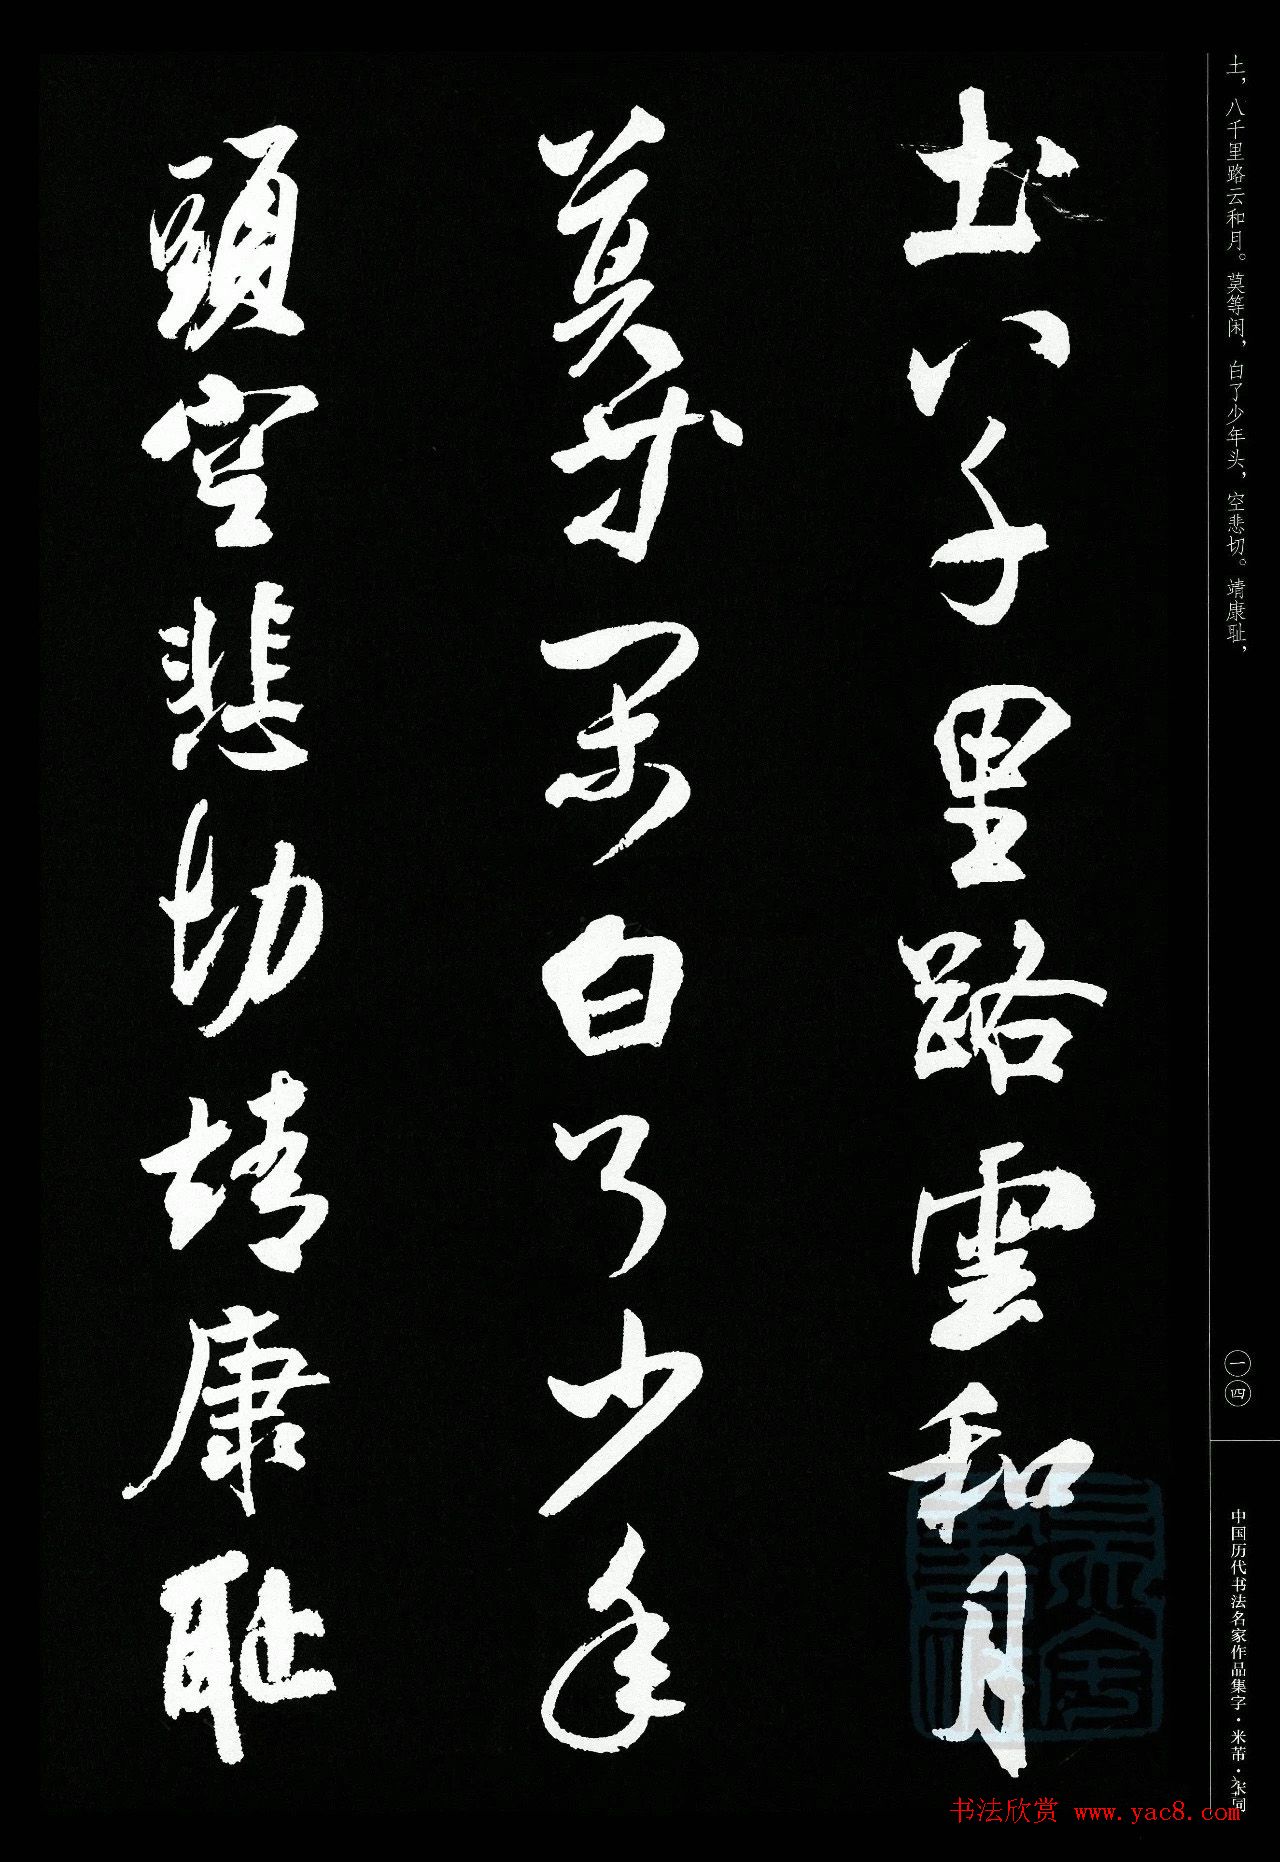 土八千里路雲和月
莫等闲白了少年
頭空悲切靖康耻
土，八千里路云和月。莫等闲，白了少年头，空悲切。靖康耻，
一四
中国历代书法名家作品集字·米芾·宋词
书法欣赏 www.yac8.com